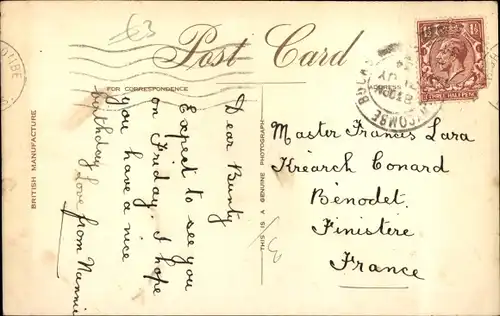 £3
Post Card
FOR CORRESPONDENCE
ADDRESS
BRITISH MANUFACTURE
THIS IS A GENUINE PHOTOGRAPH
Dear Bunty
Expect to see you
on Friday. I hope
you have a nice
birthday
Love from Nannie
Master Francis Lara
Krearch Conard
Benodet.
Finistere
France
THREE HALF PENCE